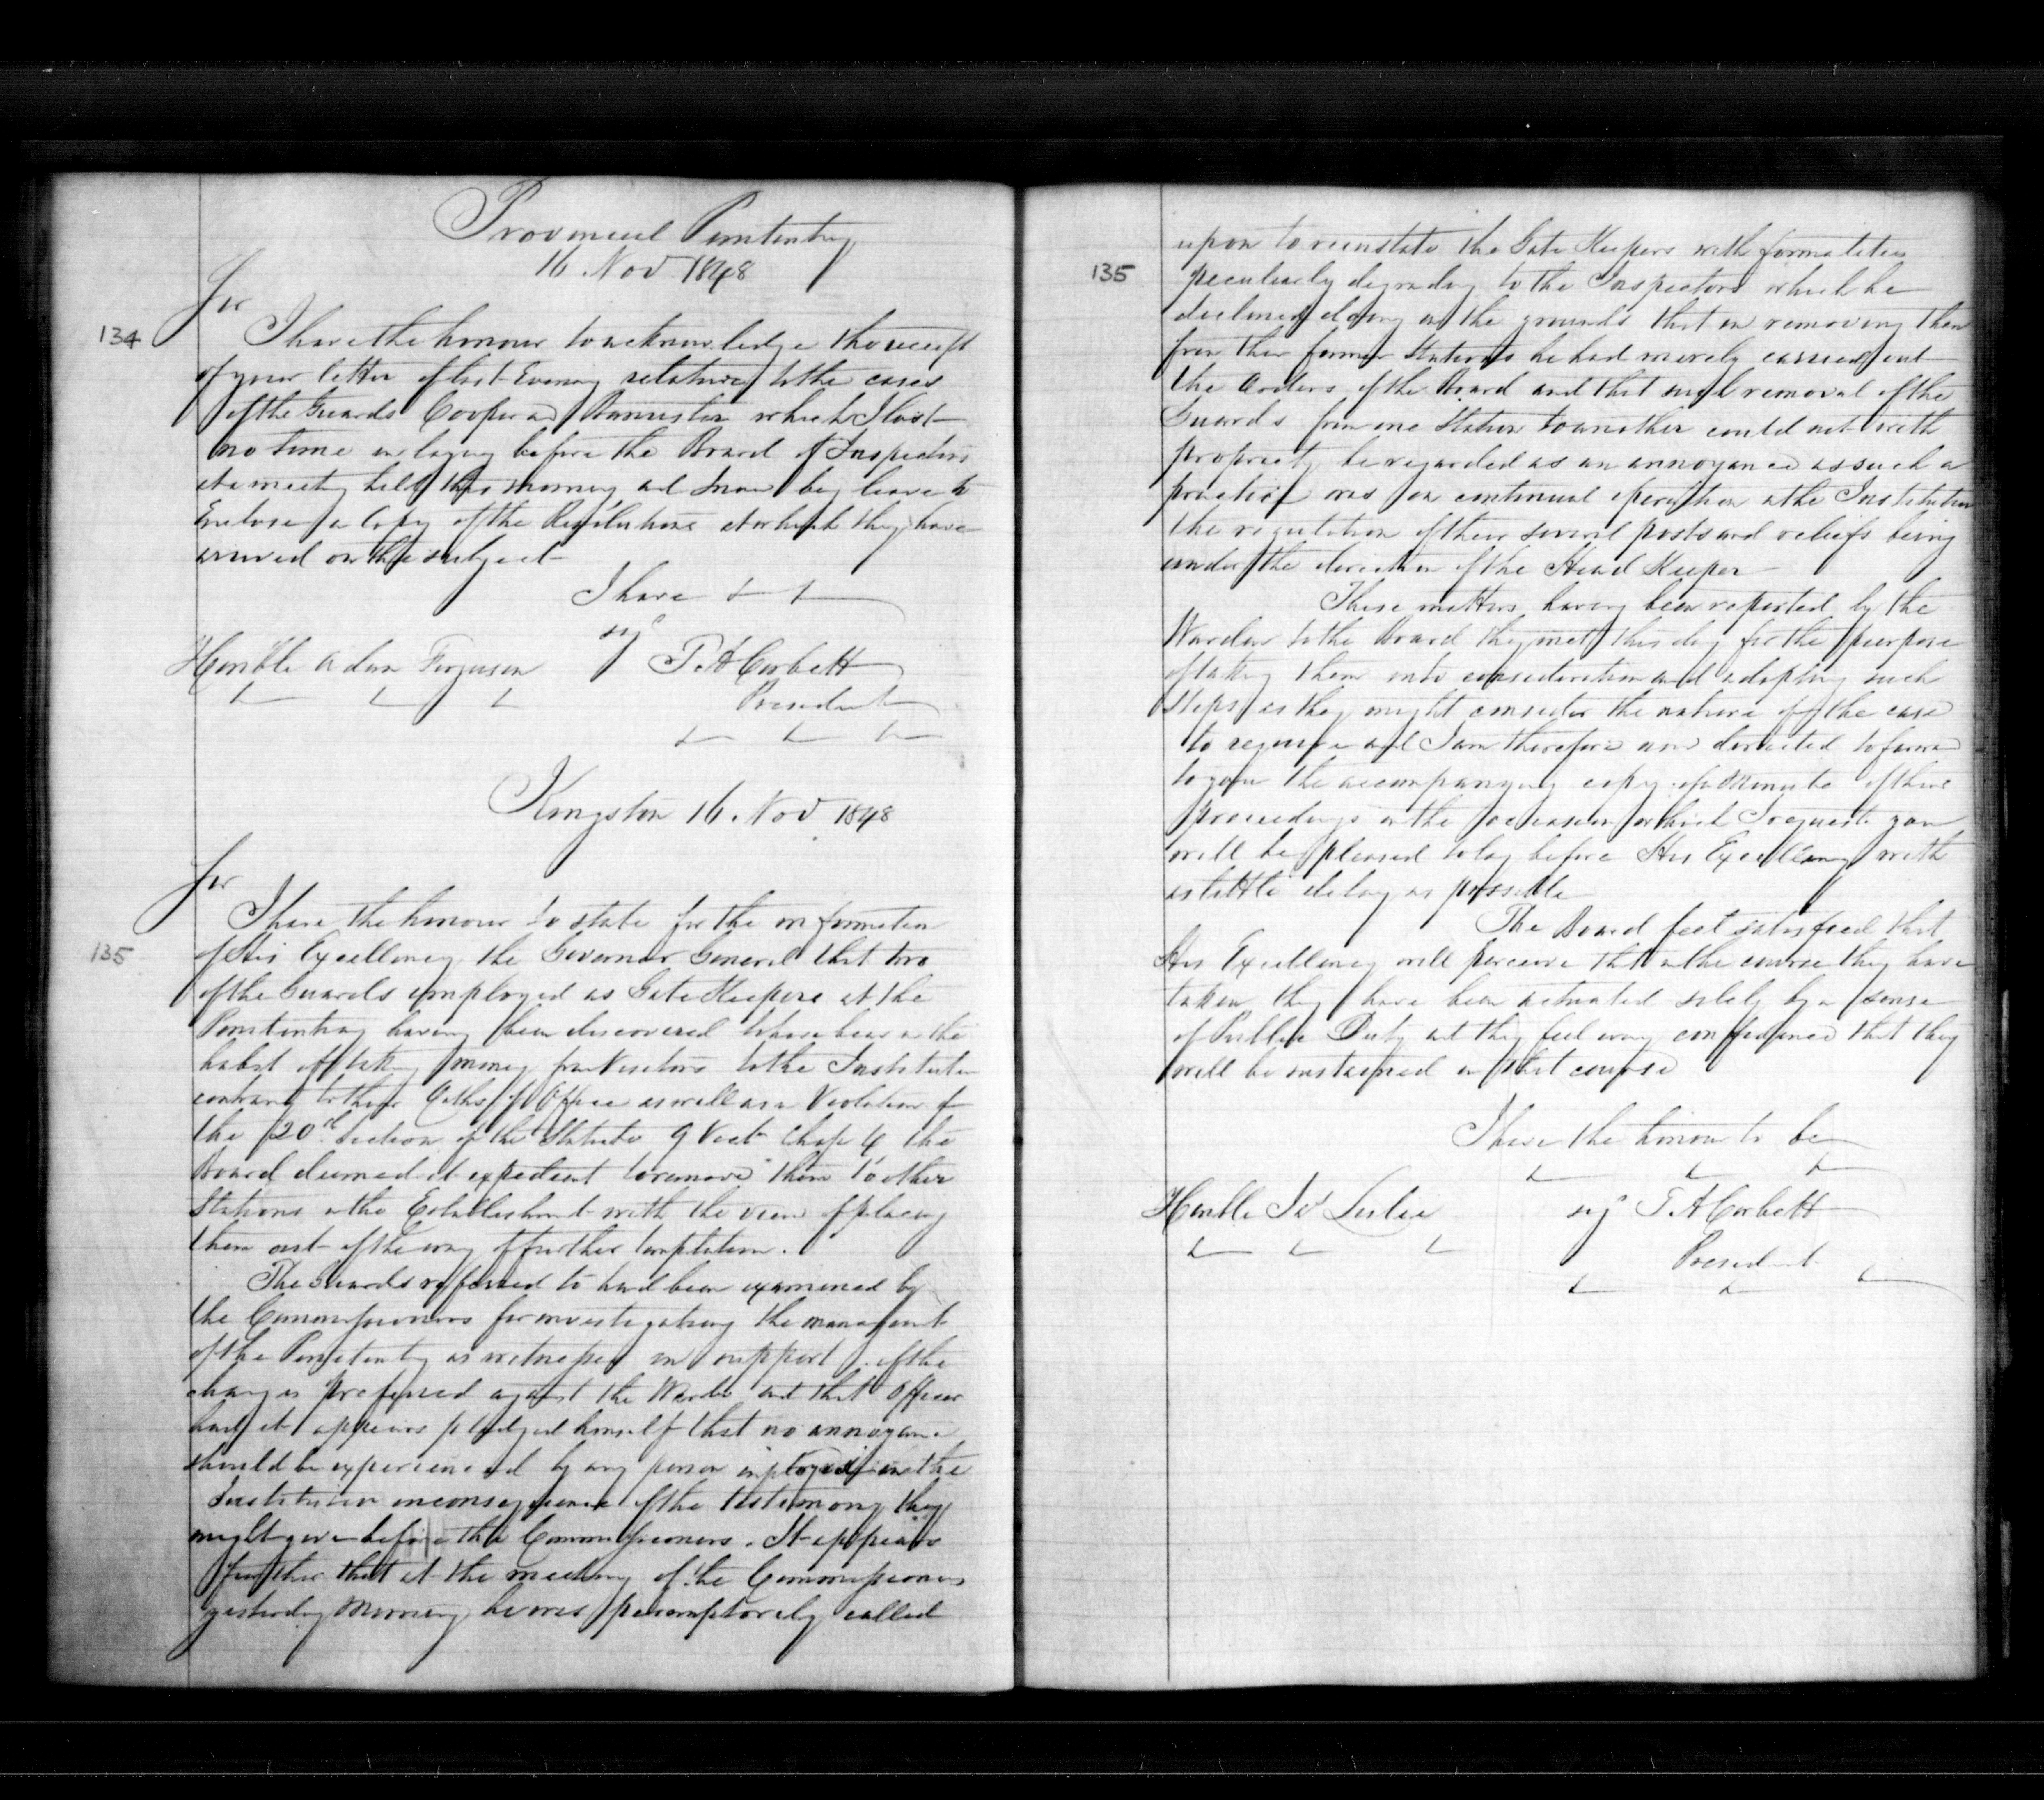 Provincial Penitentiary
16. Nov 1848
Sir
134
I have the honour to acknowledge the receipt
of your letter of last Evening relative to the cases
of the Guards Cooper and Bannister which I lost
no time in laying before the Board of Inspectors
at a meeting held this morning and I now beg leave to
Enclose a Copy of the Resolutions at which they have
arrived on the subject
I have
sig
Honble Adam Ferguson
T. A Corbett
President
Kingston 16. Nov 1848
Sir
135
I have the honour to state for the information
of His Excellency the Governor General that two
of the Guards employed as Gate Keepers at the
Penitentiary having been discovered to have been in the
habit of taking money from Visitors to the Institution
contrary to their Oaths of Office as well as in Violation of
the 20th Section of the Statute 9 Vict Chap 4 the
Board deemed it expedient to remove them to other
Stations in the Establishment with the view of placing
them out of the way of further temptation.
The Guards referred to had been examined by
the Commissioners for investigating the management
of the Penitentiary as witnesses in support of the
charges preferred against the Warden and that Officer
had it appears pledged himself that no annoyance
should be experienced by any person employed in the
Institution in consequence of the testimony they
might give before the Commissioners. It appears
further that at the meeting of the Commissioners
yesterday Morning he was peremptorily called
135
upon to reinstate the Gate Keepers with formalities
peculiarly degrading to the Inspectors which he
declined doing on the grounds that in removing them
from their former Stations he had merely carried out
the Orders of the Board and that such removal of the
Guards from one Station to another could not with
propriety be regarded as an annoyance as such a
practice was in continual operation in the Institution
the regulation of their several posts and reliefs being
under the direction of the Head Keeper
These matters having been reported by the
Warden to the Board they met this day for the purpose
of taking them into consideration and adopting such
Steps as they might consider the nature of the case
to require and I am therefore now directed to forward
to you the accompanying copy of a Minute of their
proceedings on the occasion which I request you
will be pleased to lay before His Excellency with
as little delay as possible
The Board feel satisfied that
His Excellency will perceive that in the course they have
taken they have been actuated solely by a sense
of Public Duty and they feel every confidence that they
will be sustained in that course
I have the honour to be
Honble Js Leslie
sig T. A Corbett
President